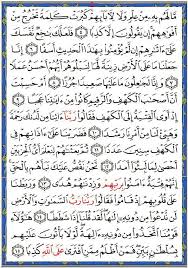 مَّا لَهُم بِهِۦ مِنْ عِلْمٍ وَلَا لِءَابَآئِهِمْ كَبُرَتْ كَلِمَةً تَخْرُجُ مِنْ
أَفْوَٰهِهِمْ إِن يَقُولُونَ إِلَّا كَذِبًا ۝٥ فَلَعَلَّكَ بَٰخِعٌ نَّفْسَكَ
عَلَىٰٓ ءَاثَٰرِهِمْ إِن لَّمْ يُؤْمِنُوا۟ بِهَٰذَا ٱلْحَدِيثِ أَسَفًا ۝٦ إِنَّا
جَعَلْنَا مَا عَلَى ٱلْأَرْضِ زِينَةً لَّهَا لِنَبْلُوَهُمْ أَيُّهُمْ أَحْسَنُ عَمَلًا
۝٧ وَإِنَّا لَجَٰعِلُونَ مَا عَلَيْهَا صَعِيدًا جُرُزًا ۝٨ أَمْ حَسِبْتَ
أَنَّ أَصْحَٰبَ ٱلْكَهْفِ وَٱلرَّقِيمِ كَانُوا۟ مِنْ ءَايَٰتِنَا عَجَبًا ۝٩
إِذْ أَوَى ٱلْفِتْيَةُ إِلَى ٱلْكَهْفِ فَقَالُوا۟ رَبَّنَآ ءَاتِنَا مِن لَّدُنكَ رَحْمَةً
وَهَيِّئْ لَنَا مِنْ أَمْرِنَا رَشَدًا ۝١٠ فَضَرَبْنَا عَلَىٰٓ ءَاذَانِهِمْ فِى
ٱلْكَهْفِ سِنِينَ عَدَدًا ۝١١ ثُمَّ بَعَثْنَٰهُمْ لِنَعْلَمَ أَىُّ ٱلْحِزْبَيْنِ
أَحْصَىٰ لِمَا لَبِثُوٓا۟ أَمَدًا ۝١٢ نَّحْنُ نَقُصُّ عَلَيْكَ نَبَأَهُم بِٱلْحَقِّ
إِنَّهُمْ فِتْيَةٌ ءَامَنُوا۟ بِرَبِّهِمْ وَزِدْنَٰهُمْ هُدًى ۝١٣ وَرَبَطْنَا
عَلَىٰ قُلُوبِهِمْ إِذْ قَامُوا۟ فَقَالُوا۟ رَبُّنَا رَبُّ ٱلسَّمَٰوَٰتِ وَٱلْأَرْضِ
لَن نَّدْعُوَا۟ مِن دُونِهِۦٓ إِلَٰهًا لَّقَدْ قُلْنَآ إِذًا شَطَطًا ۝١٤ هَٰٓؤُلَآءِ
قَوْمُنَا ٱتَّخَذُوا۟ مِن دُونِهِۦٓ ءَالِهَةً لَّوْلَا يَأْتُونَ عَلَيْهِم
بِسُلْطَٰنٍۭ بَيِّنٍ فَمَنْ أَظْلَمُ مِمَّنِ ٱفْتَرَىٰ عَلَى ٱللَّهِ كَذِبًا ۝١٥